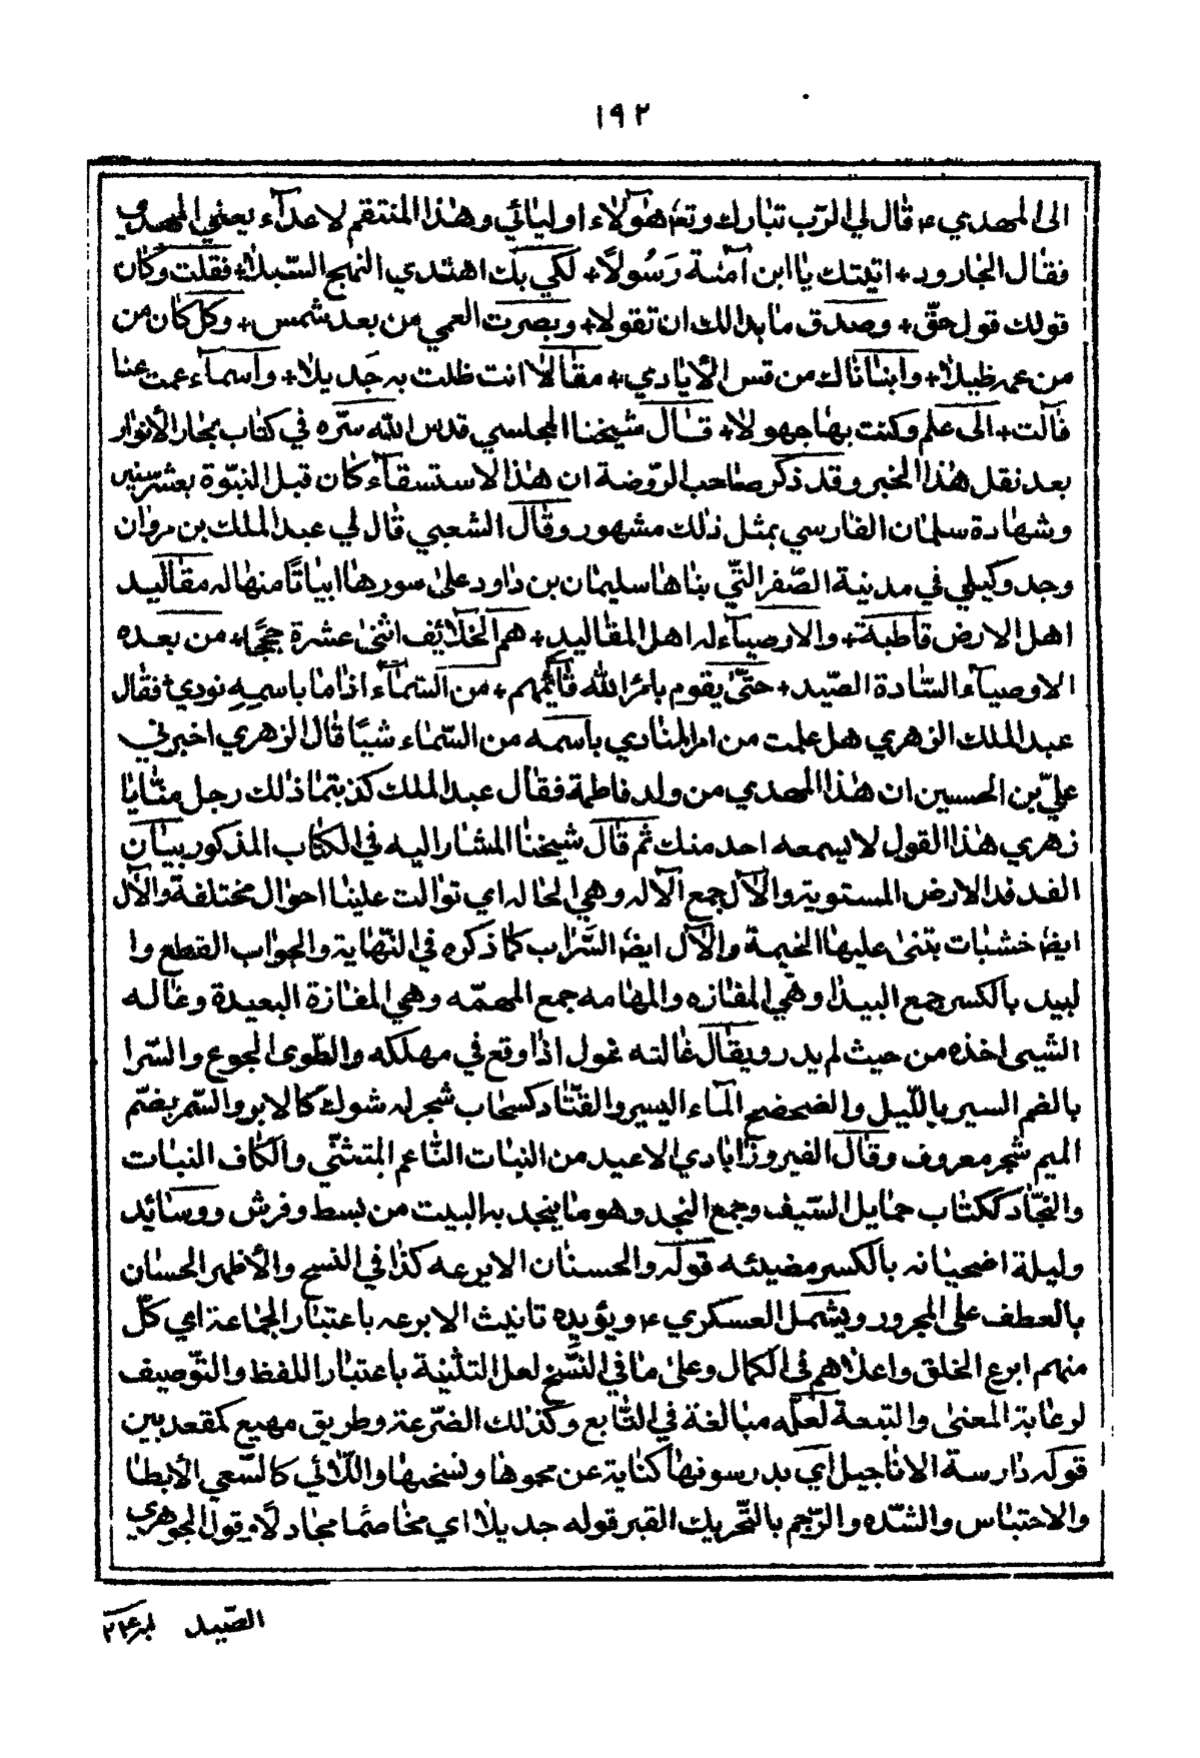 ١٩٢
الى المهدي ع قال لي الرب تبارك وتعا هؤلاء اوليائي وهذا المنتقم لاعدآء يعني المهدي
فقال الجارود + اتيتك يا ابن آمنة رسولا + لكي بك اهتدي النهج السبلا + فقلت وكان
قولك قول حق + وصدق ما بدا لك ان تقولا + وبصرت العمي من بعد شمس + وكل كان من
من عمه ظيلا + وانبأناك من قس الأيادي + مقالا انت ظلت به جديلا + واسمآء عمت عنا
فآلت + الى علم وكنت بها جهولا + قال شيخنا المجلسي قدس الله سره في كتاب بحار الأنوار
بعد نقل هذا الخبر وقد ذكر صاحب الروضة ان هذا الاستسقآء كان قبل النبوة بعشر سنين
وشهادة سلمان الفارسي بمثل ذلك مشهور وقال الشعبي قال لي عبد الملك بن مروان
وجد وكيلي في مدينة الصفر التي بناها سليمان بن داود على سورها ابياتا منها له مقاليد
اهل الارض قاطبة + والارصيآء له اهل المقاليد + هم الخلائف اثنى عشرة حججا + من بعده
الاوصيآء السادة الصيد + حتى يقوم بامر الله قائمهم + من السمآء اذا ما باسمه نودي + فقال
عبد الملك الزهري هل علمت من امر المنادي باسمه من السماء شيئا قال الزهري اخبرني
علي بن الحسين ان هذا المهدي من ولد فاطمة فقال عبد الملك كذبتما ذلك رجل منا يا
زهري هذا القول لا يسمعه احد منك ثم قال شيخنا المشار اليه في الكتاب المذكور بيان
الفدفد الارض المستوية والآل جمع الآله وهي الحاله اي توالت علينا احوال مختلفة والآل
ايضا خشبات بتنى عليها الخيمة والآل ايضا السراب كما ذكره في النهاية والجواب القطع وا
لبيد بالكسر جمع البيدا وهي المفازه والمهامه جمع المهمه وهي المفازة البعيدة وغاله
الشيى اخذه من حيث لم يدر ويقال غالته غول اذا وقع في مهلكه والطوى الجوع والسرا
بالضم السير بالليل والضحضح المآء اليسير والقتاد كسحاب شجر له شوك كالابر والسمر بضم
الميم شجر معروف وقال الفيروزآبادي الاعيد من النبات الناعم المتثني والكاف النبات
والنجاد ككتاب حمايل السيف وجمع النجد وهو ما ينجد به البيت من بسط وفرش ووسائد
وليلة اضحيانه بالكسر مضيئه قوله والحسنان الابرعه كذا في النسخ والأظهر الحسان
بالعطف على المجرور ويشمل العسكري ع ويؤيده تانيث الابرعه باعتبار الجماعة اي كل
منهم ابرع الخلق واعلاهم في الكمال وعلى ما في النسخ لعل التثنية باعتبار اللفظ والتوصيف
لرعاية المعنى والتبعة لعله مبالغة في التابع وكذلك الضرعة وطريق مهيع كمقعد بين
قوله دارسة الاناجيل اي يدرسونها كناية عن محوها ونسخها واللائي كالسعي الأبطا
والاحتباس والشده والرجم بالتحريك القبر قوله جديلا اي مخاصما مجادلا ويقول الجوهري
الصيد